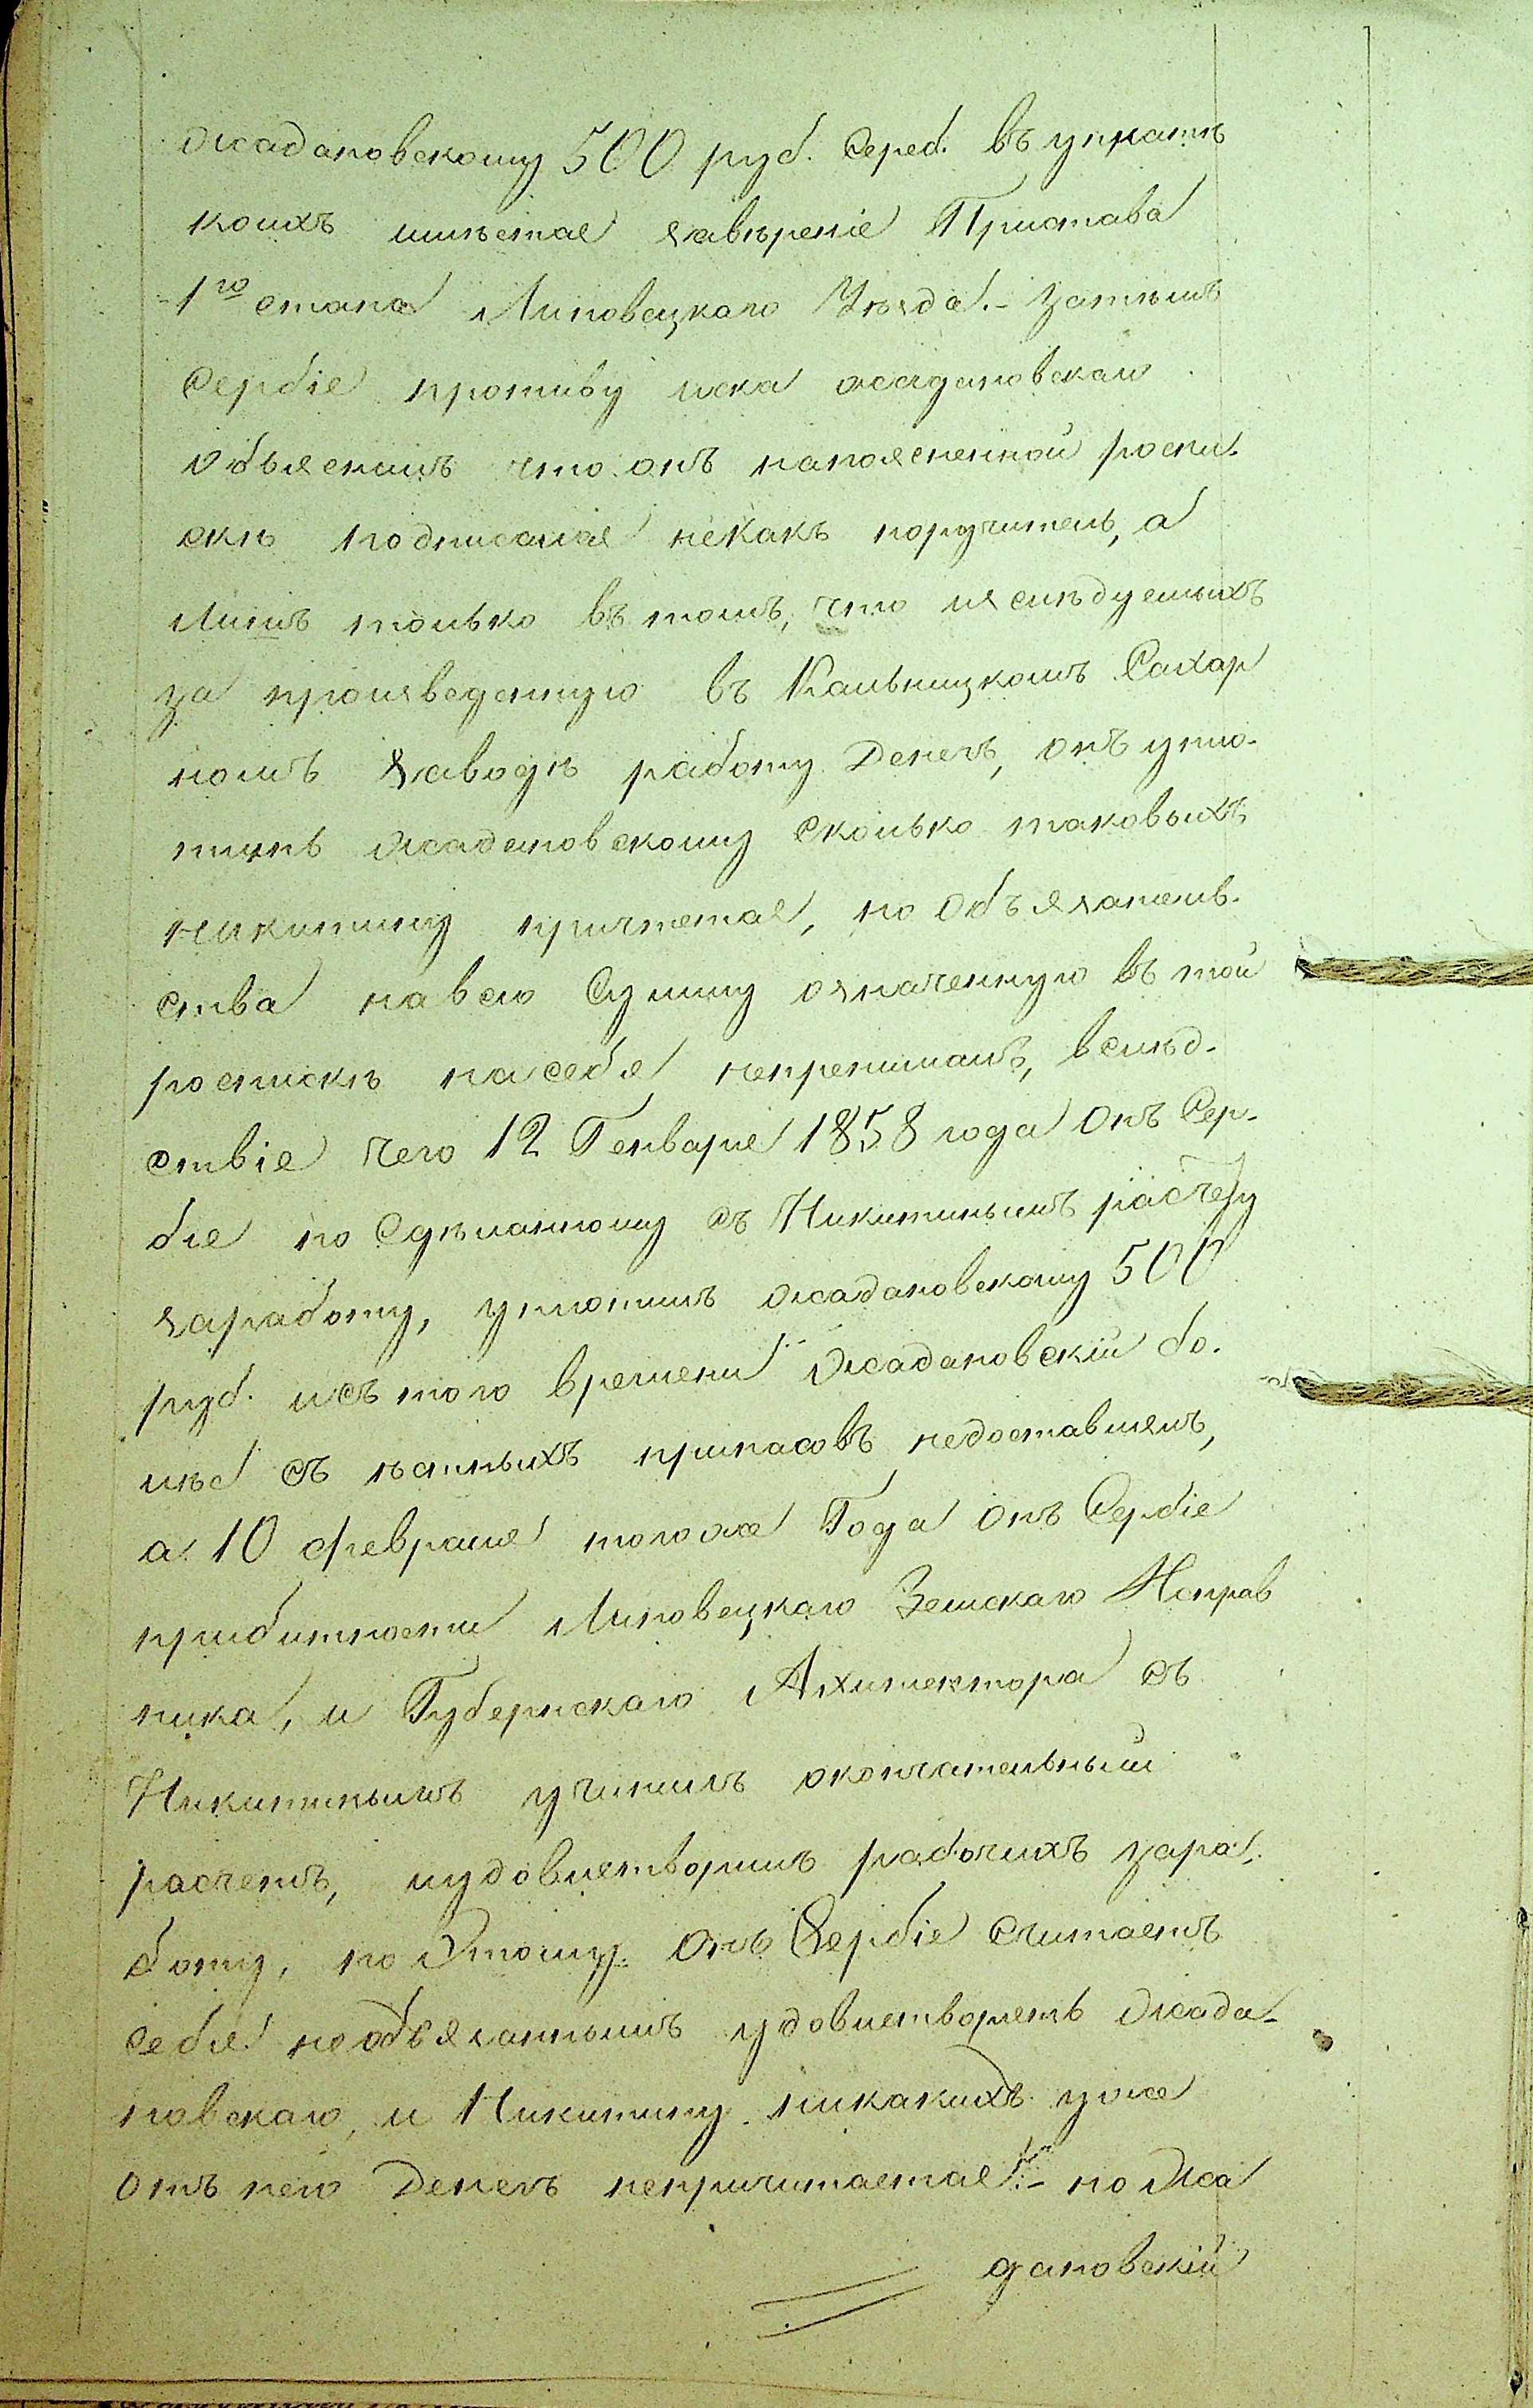 Жадановскому 500 руб. Сереб. въ уплатѣ
коихъ имѣется завѣреніе Пристава
1го стана Липовецкаго Уѣзда. - Затѣмъ
Сербіе противу иска Жадановскаи
Объяснилъ что онъ напоясненной роспи-
скѣ подписался некакъ поручитель, а
лишъ только въ томъ, что изслѣдуемыхъ
за произведенную въ Кальницкомъ Сахар
номъ Заводѣ работу Денегъ, онъ упло-
титъ Жадановскому сколько таковыхъ
Никитину причтется, но Объязатель-
ства на всю Сумму означенную въ той
роспискѣ на себя непренималъ, вслѣд-
ствіе чего 12 Генваря 1858 года Онъ Сер-
біе по Сдѣланному съ Никитинымъ расчету
заработу, уплотилъ Жадановскому 500
руб. исъ того времени Жадановскій бо-
лѣе съѣстныхъ припасовъ недоставлялъ,
а 10 февраля тогоже Года Онъ Сербіе
прибитности Липовецкаго Земскаго Исправ
ника, и Губернскаго Архитектора съ
Никитинымъ учинилъ окончательный
расчетъ, иудовлетворилъ рабочихъ зара-
боту, по Этому Онъ Сербіе Считаетъ
Себя необъязаннымъ удовлетворять Жада-
новскаго, и Никитину никакихъ уже
отъ него Денегъ непричитается. - но Жа
дановскій